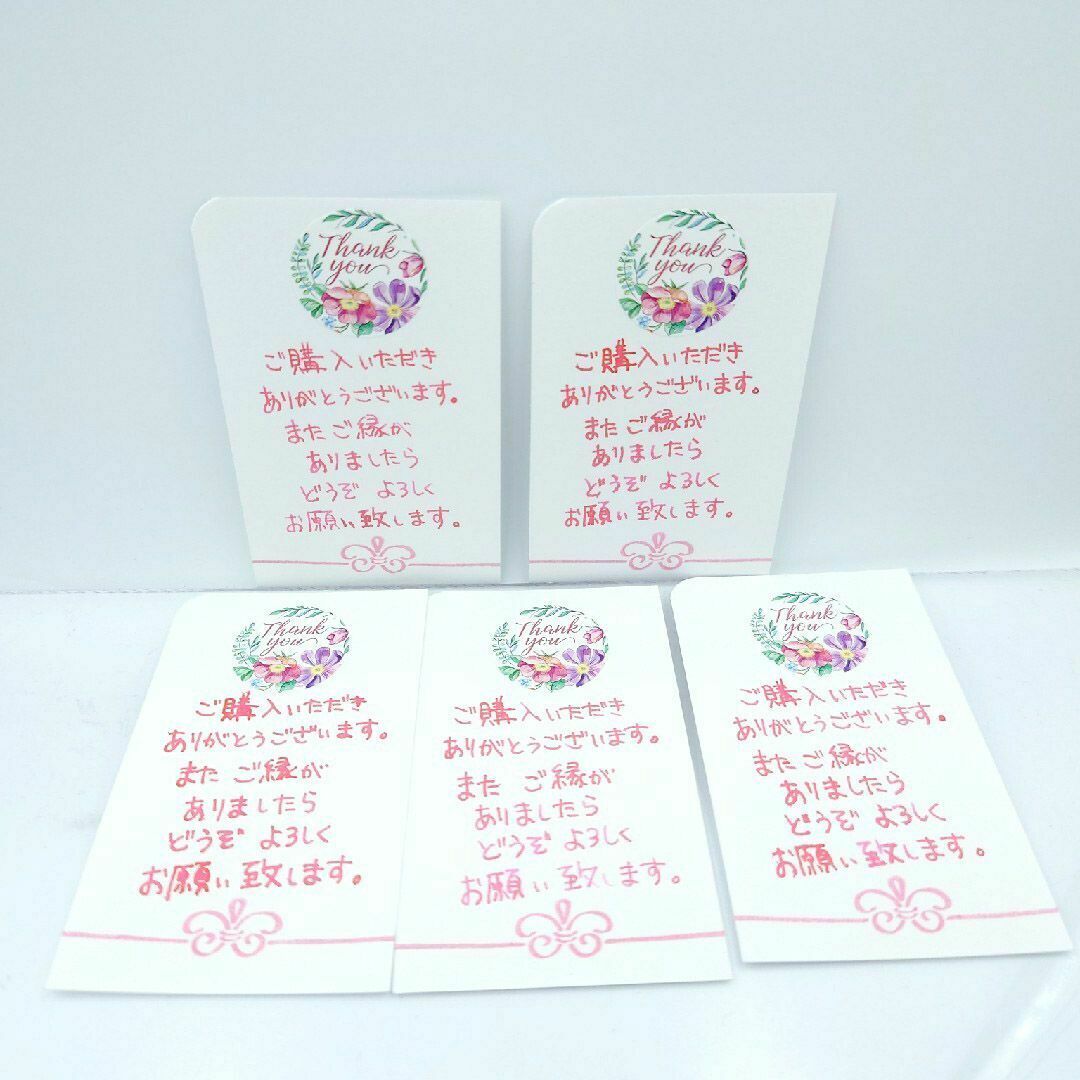 Thank
you
ご購入いただき
ありがとうございます。
またご縁が
ありましたら
どうぞ よろしく
お願い致します。
Thank
you
ご購入いただき
ありがとうございます。
またご縁が
ありましたら
どうぞ よろしく
お願い致します。
Thank
you
ご購入いただき
ありがとうございます。
また ご縁が
ありましたら
どうぞ よろしく
お願い致します。
Thank
you
ご購入いただき
ありがとうございます。
また ご縁が
ありましたら
どうぞ よろしく
お願い致します。
Thank
you
ご購入いただき
ありがとうございます。
また ご縁が
ありましたら
どうぞ よろしく
お願い致します。